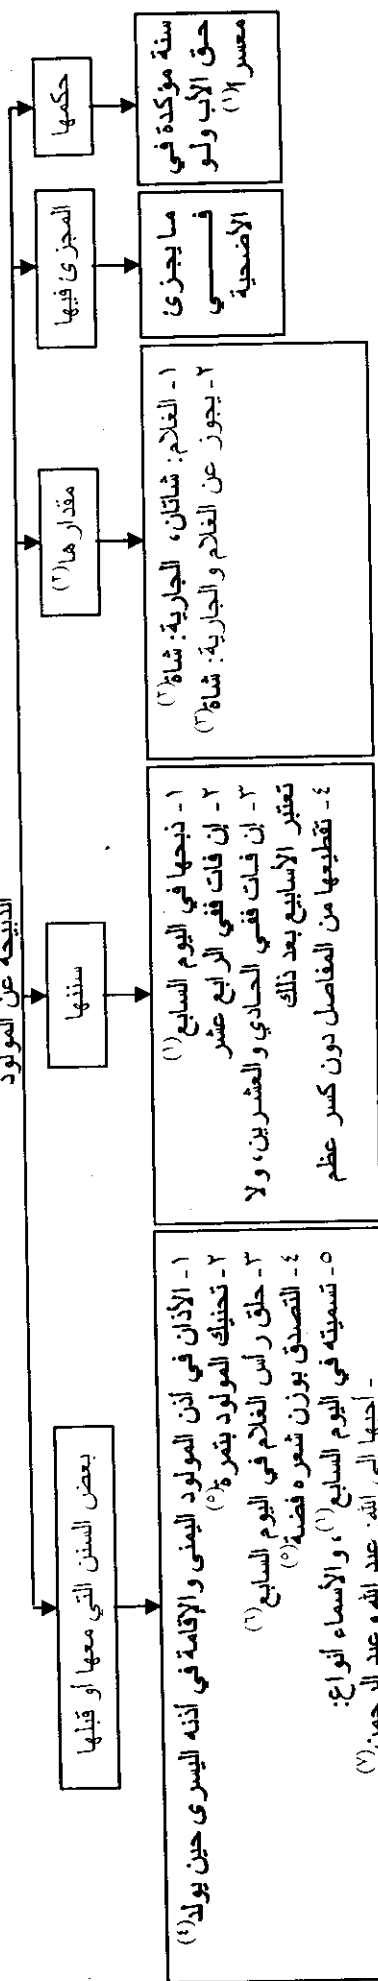 الذبيحة عن المولود
حكمها
سنة مؤكدة في
حق الأب ولو
معسرا(١)
المجزئ فيها
ما يجزئ
في
الأضحية
مقدارها(٢)
١- الغلام: شاتان، الجارية: شاة(٢)
٢- يجوز عن الغلام والجارية: شاة(٣)
سننها
١- ذبحها في اليوم السابع(١)
٢- إن فات ففي الرابع عشر
٣- إن فات ففي الحادي والعشرين، ولا
تعتبر الأسابيع بعد ذلك
٤- تقطيعها من المفاصل دون كسر عظم
بعض السنن التي معها أو قبلها
١- الأذان في أذن المولود اليمنى والإقامة في أذنه اليسرى حين يولد(٤)
٢- تحنيك المولود بتمرة(٥)
٣- حلق رأس الغلام في اليوم السابع(٦)
٤- التصدق بوزن شعره فضة(٥)
٥- تسميته في اليوم السابع(٦)، والأسماء أنواع:
- أحبها إلى الله: عبد الله وعبد الرحمن(٧)